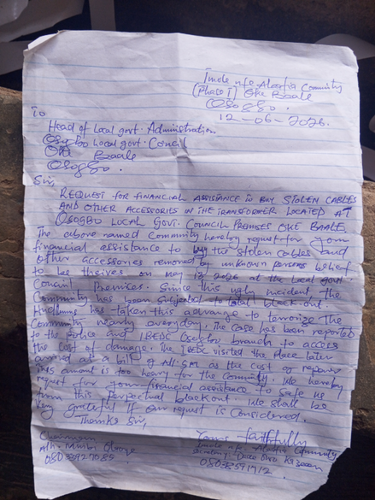 Community
(Phase I) Oke Baale
Osogbo.
12-06-2026.
To
Head of Local govt. Administration
Osogbo Local govt. Council
Oke Baale
Osogbo
Sir,
REQUEST FOR FINANCIAL ASSISTANCE TO BUY STOLEN CABLES
AND OTHER ACCESSORIES IN THE TRANSFORMER LOCATED AT
OSOGBO LOCAL GOVT. COUNCIL PREMISES OKE BAALE.
The above named Community hereby request for your
financial assistance to buy the stolen cables and
other accessories removed by unknown persons
to be theives on May 2026 at the Local govt.
Council Premises. Since this ugly incident the
Community has been subjected to total blackout.
Hoodlums has taken this advance to terrorize the
Community nearly everyday. The case has been reported
to the Police and IBEDC branch to access
the cost of damage. The IBEDC visited the place later
arrived at a bill of as the cost of repairs
This amount is too heavy for the Community. We hereby
request for your financial assistance to safe us
from this Perpetual blackout. We shall be
grateful if our request is considered.
Thanks Sir,
Yours faithfully
Chairman